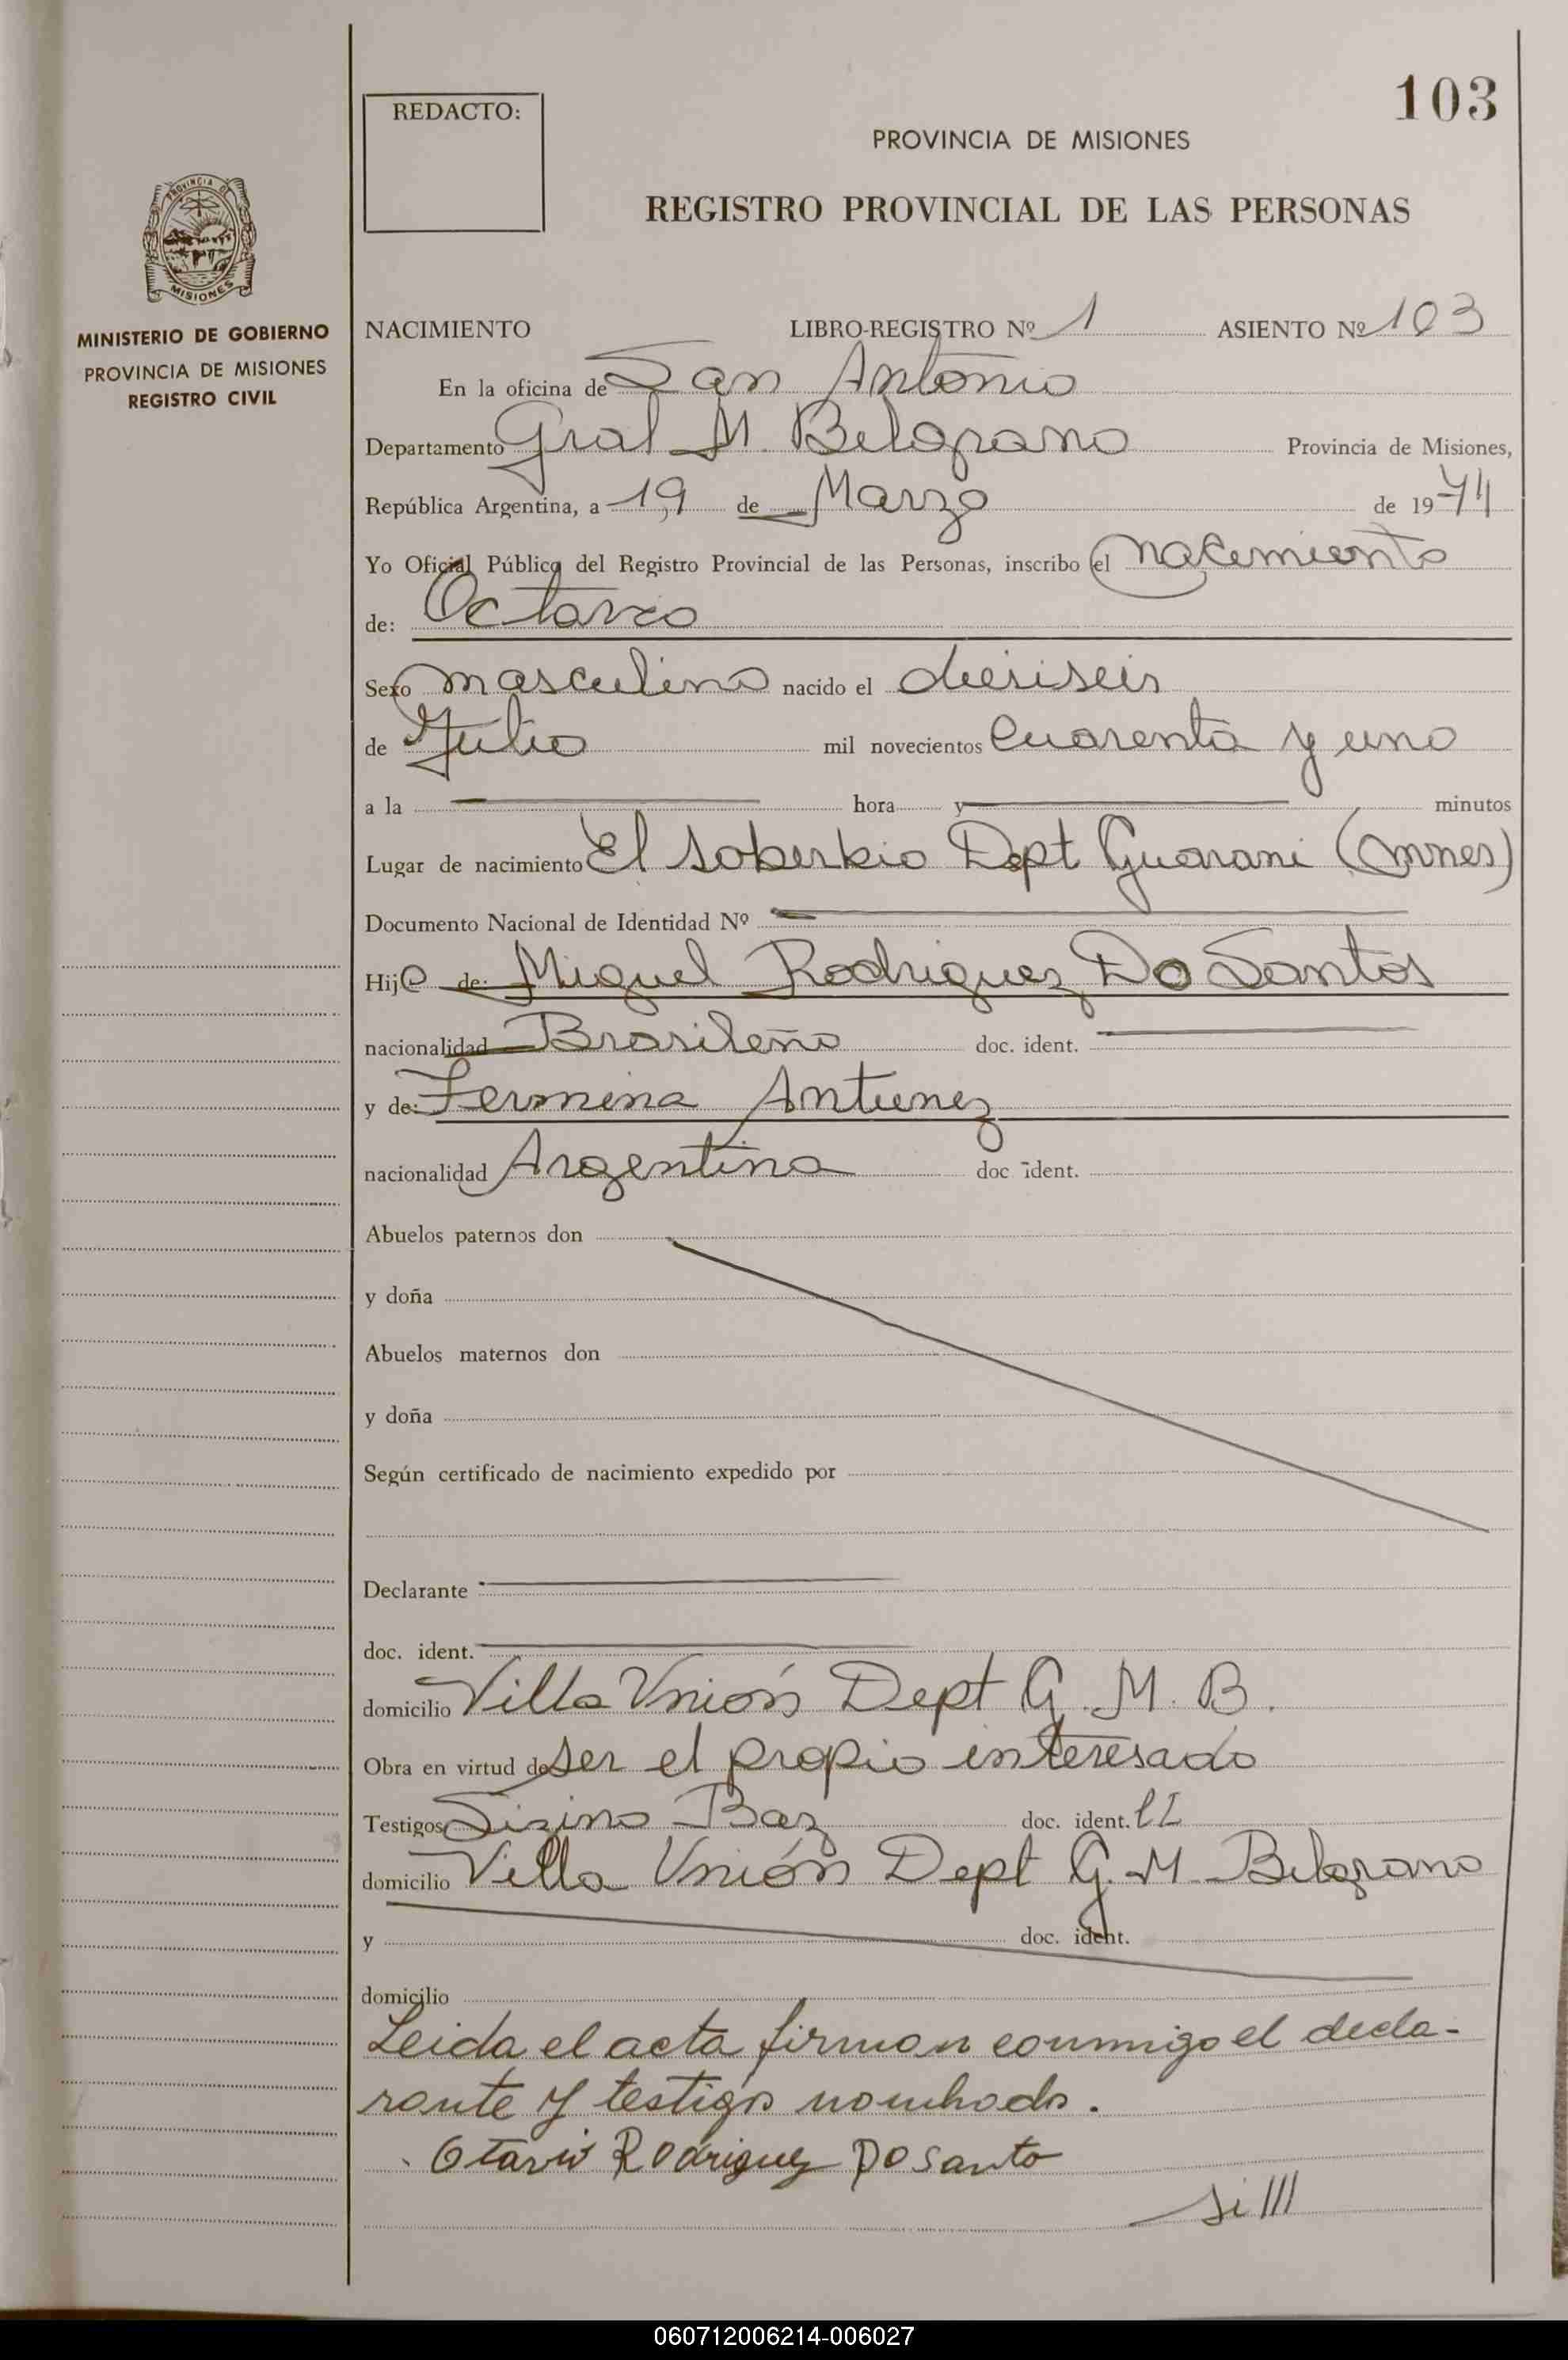 103
REDACTO:
PROVINCIA DE MISIONES
REGISTRO PROVINCIAL DE LAS PERSONAS
PROVINCIA DE
MISIONES
MINISTERIO DE GOBIERNO
PROVINCIA DE MISIONES
REGISTRO CIVIL
NACIMIENTO LIBRO-REGISTRO Nº 1 ASIENTO Nº 103
En la oficina de San Antonio
Departamento Gral M. Belgrano Provincia de Misiones,
República Argentina, a 19 de Marzo de 1974
Yo Oficial Público del Registro Provincial de las Personas, inscribo el nacimiento
de: Octavio
Sexo masculino nacido el dieciseis
de Julio mil novecientos Cuarenta y uno
a la hora y minutos
Lugar de nacimiento El soberbio Dept Guarani (mnes)
Documento Nacional de Identidad Nº
Hijo de: Miguel Rodriguez Do Santos
nacionalidad Brasileño doc. ident.
y de: Fermina Antunez
nacionalidad Argentina doc ident.
Abuelos paternos don
y doña
Abuelos maternos don
y doña
Según certificado de nacimiento expedido por
Declarante
doc. ident.
domicilio Villa Unión Dept G. M. B.
Obra en virtud de ser el propio interesado
Testigos Sizino Baz doc. ident.
domicilio Villa Unión Dept G. M. Belgrano
y doc. ident.
domicilio
Leida el acta firman conmigo el decla-
rante y testigos nombrado.
Otavio Rodriguez Do Santo
si///
060712006214-006027